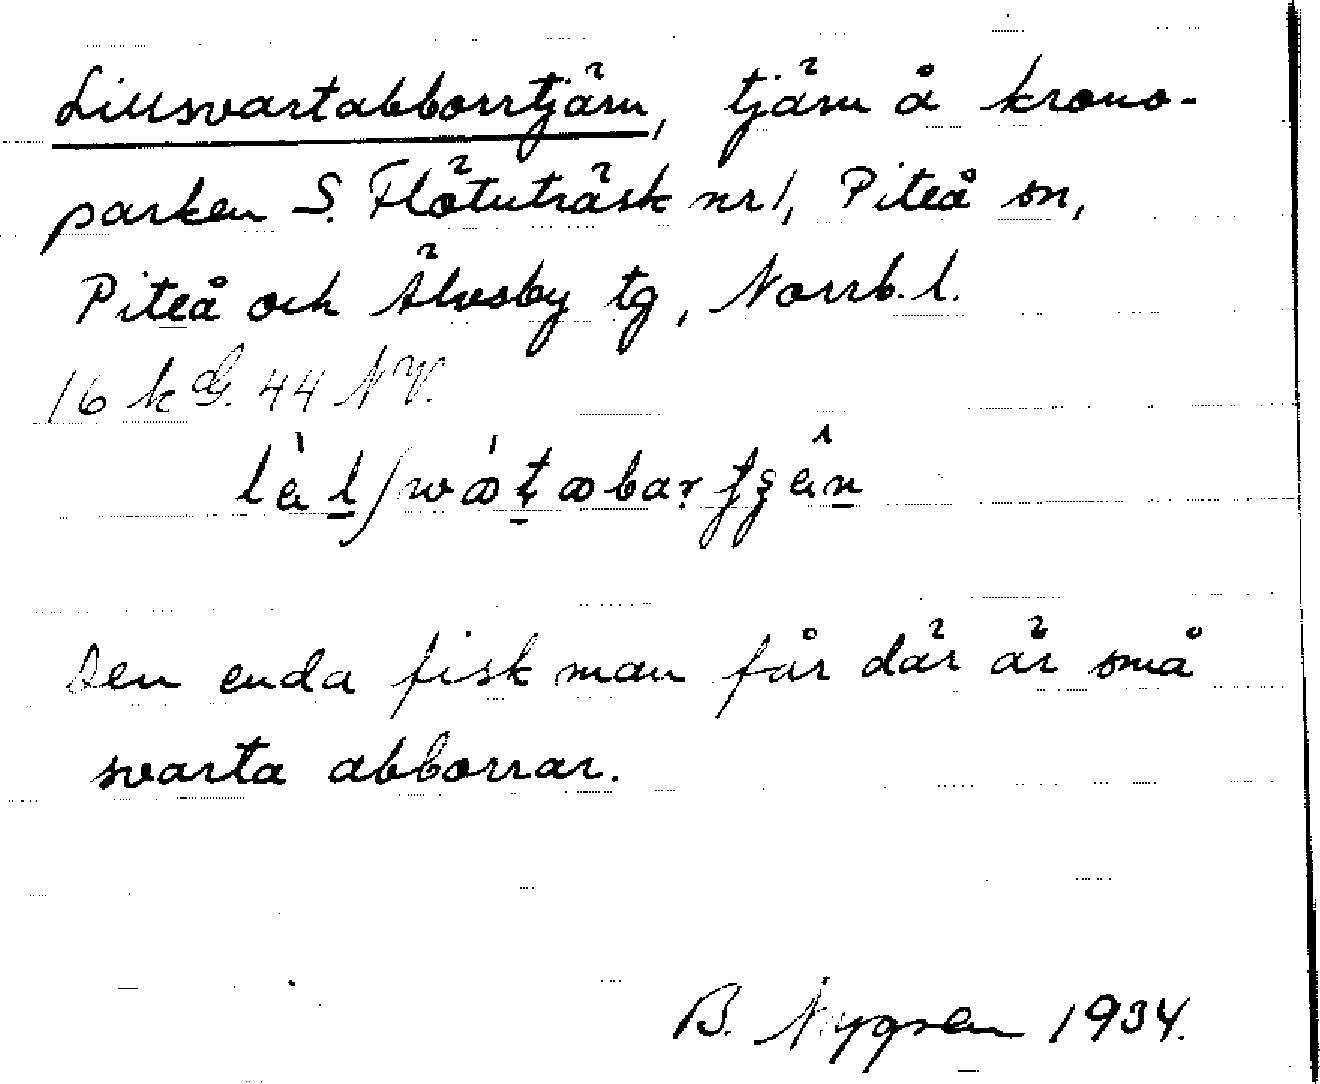 Lillsvartabborrtjärn, tjärn å krono-
parken S. Flötuträsk nr 1, Piteå sn,
Piteå och Älvsby tg, Norrb. l.
16 k 44 NV.
Den enda fisk man får där är små
svarta abborrar.
B. Nygren 1934.